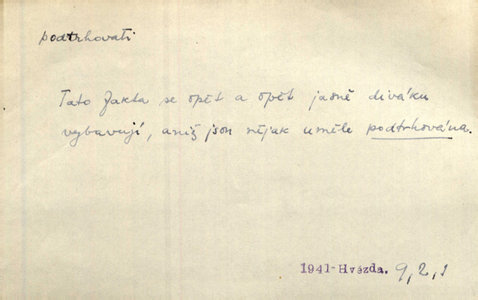 podtrhovati
Tato fakta se opět a opět jasně diváku
vybavují, aniž jsou nějak uměle podtrhována.
1941-Hvězda. 9, 2, 1